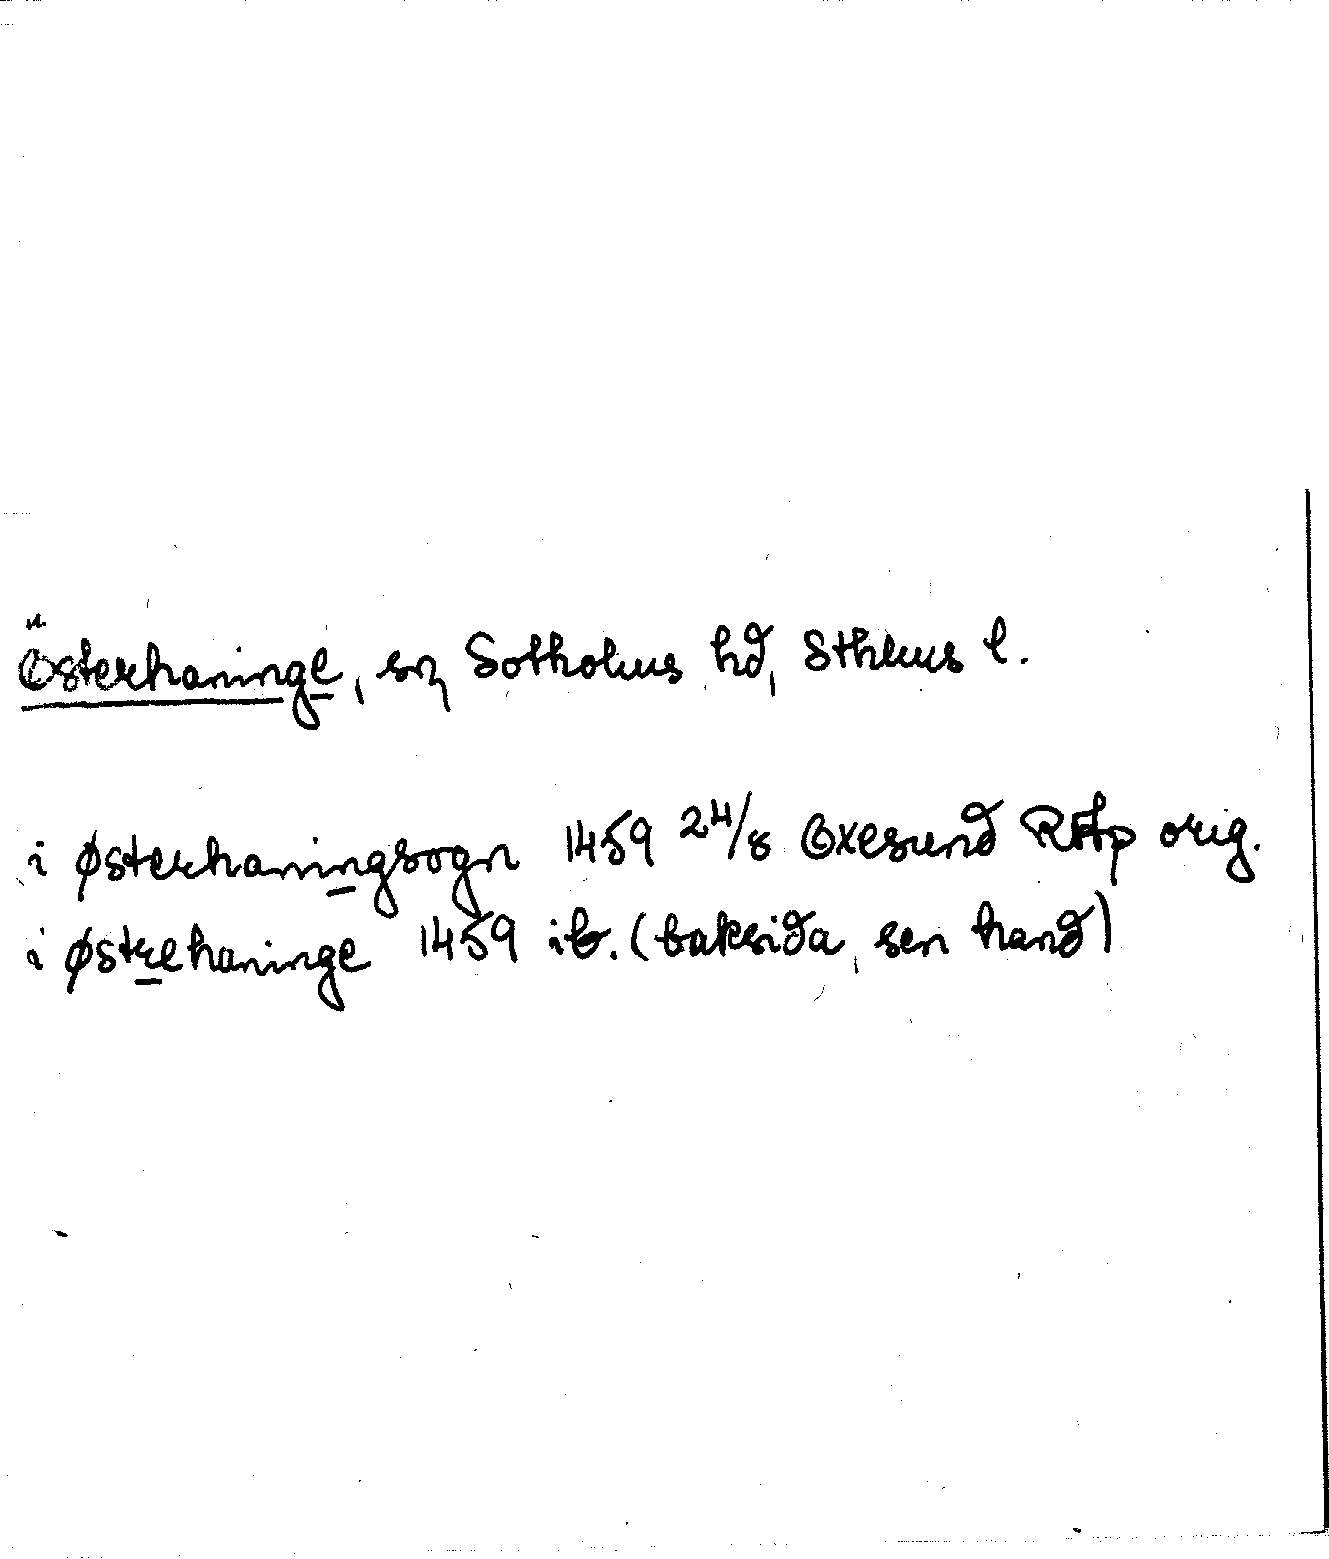 Österhaninge, sn, Sotholms hd, Sthlms l.
i østerhaningsogn 1459 24/8 Oxesund RAp orig.
i østrehaninge 1459 ib. (baksida, sen hand)